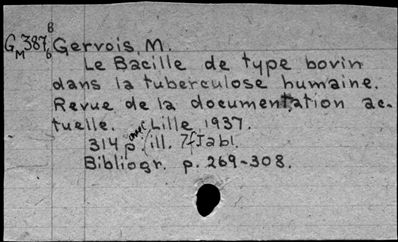 GM 387 B6 Gervois, M.
Le Bacille de type bovin
dans la tuberculose humaine.
Revue de la documentation ac-
tuelle. Lille 1937.
314 p. (ill. 7 Tabl.
Bibliogr. p. 269-308.